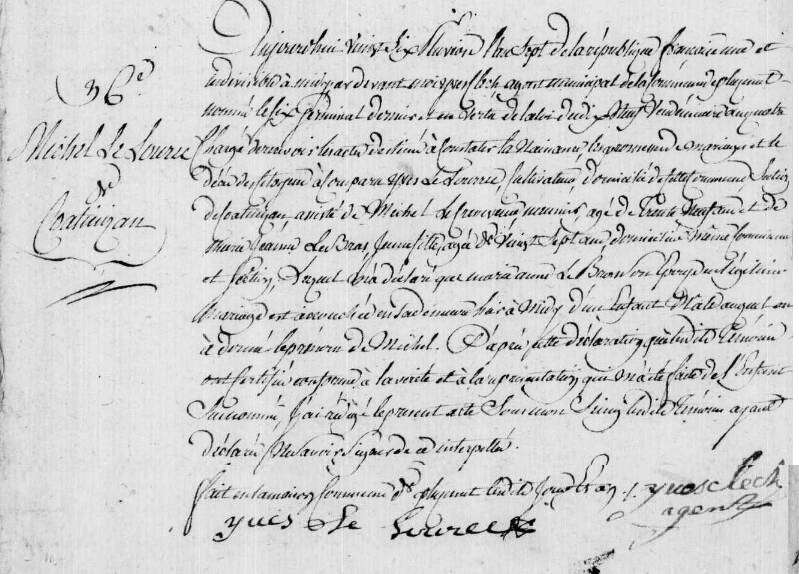 36e
Michel Le Lourec
De
Coatienzan
Aujourd'hui vingt Six Pluviose l'an Sept de la république française une et
indivisible à midy par devant moi yves Cloch agent municipal de la Commune de plugunt
nommé le Six germinal dernier et en vertu de la loi du dix Neuf Vendemiaire an quatre
Chargé de recevoir les actes destinés à Constater la Naissance les promesses de mariages et le
décés des Citoyens à Comparu yves Le Lourec Cultivateur domicilié de cette Commune Section
de Coatienzan assisté de Michel agé de Trente Neuf ans et de
Marie Jeanne Le Bras Jeune fille, agée de Vingt Sept ans domiciliés même Commune
et Section, Lequel m'a déclaré que marie anne Le Bron Son Epouse en légitime
Mariage est accouchée en Sa demeure hier à Midy d'un Enfant Male auquel on
à donné le prenom de Michel. D'après cette déclaration que les dits Témoins
ont Certifié conforme à la verité et à la représentation qui m'a été faite de l'Enfant
Susnommé J'ai rédigé le present acte Sous mon Seing les dits Témoins ayant
déclaré Ne Savoir Signer de ce interpellés.
fait en la maison Commune de plugunt les dits Jour & an ./.
yves Cloch
agent
yves Le Lourec